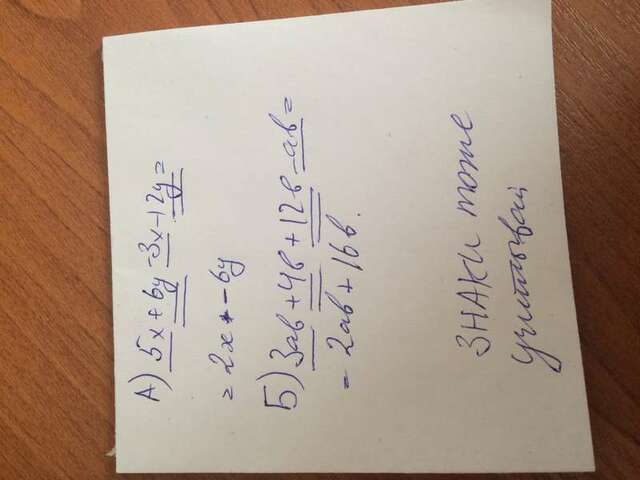 А) 5x+6y-3x-12y=
= 2x - 6y
Б) 3ав+4в+12в-ав=
= 2ав+16в.
ЗНАКИ тоже
учитывай